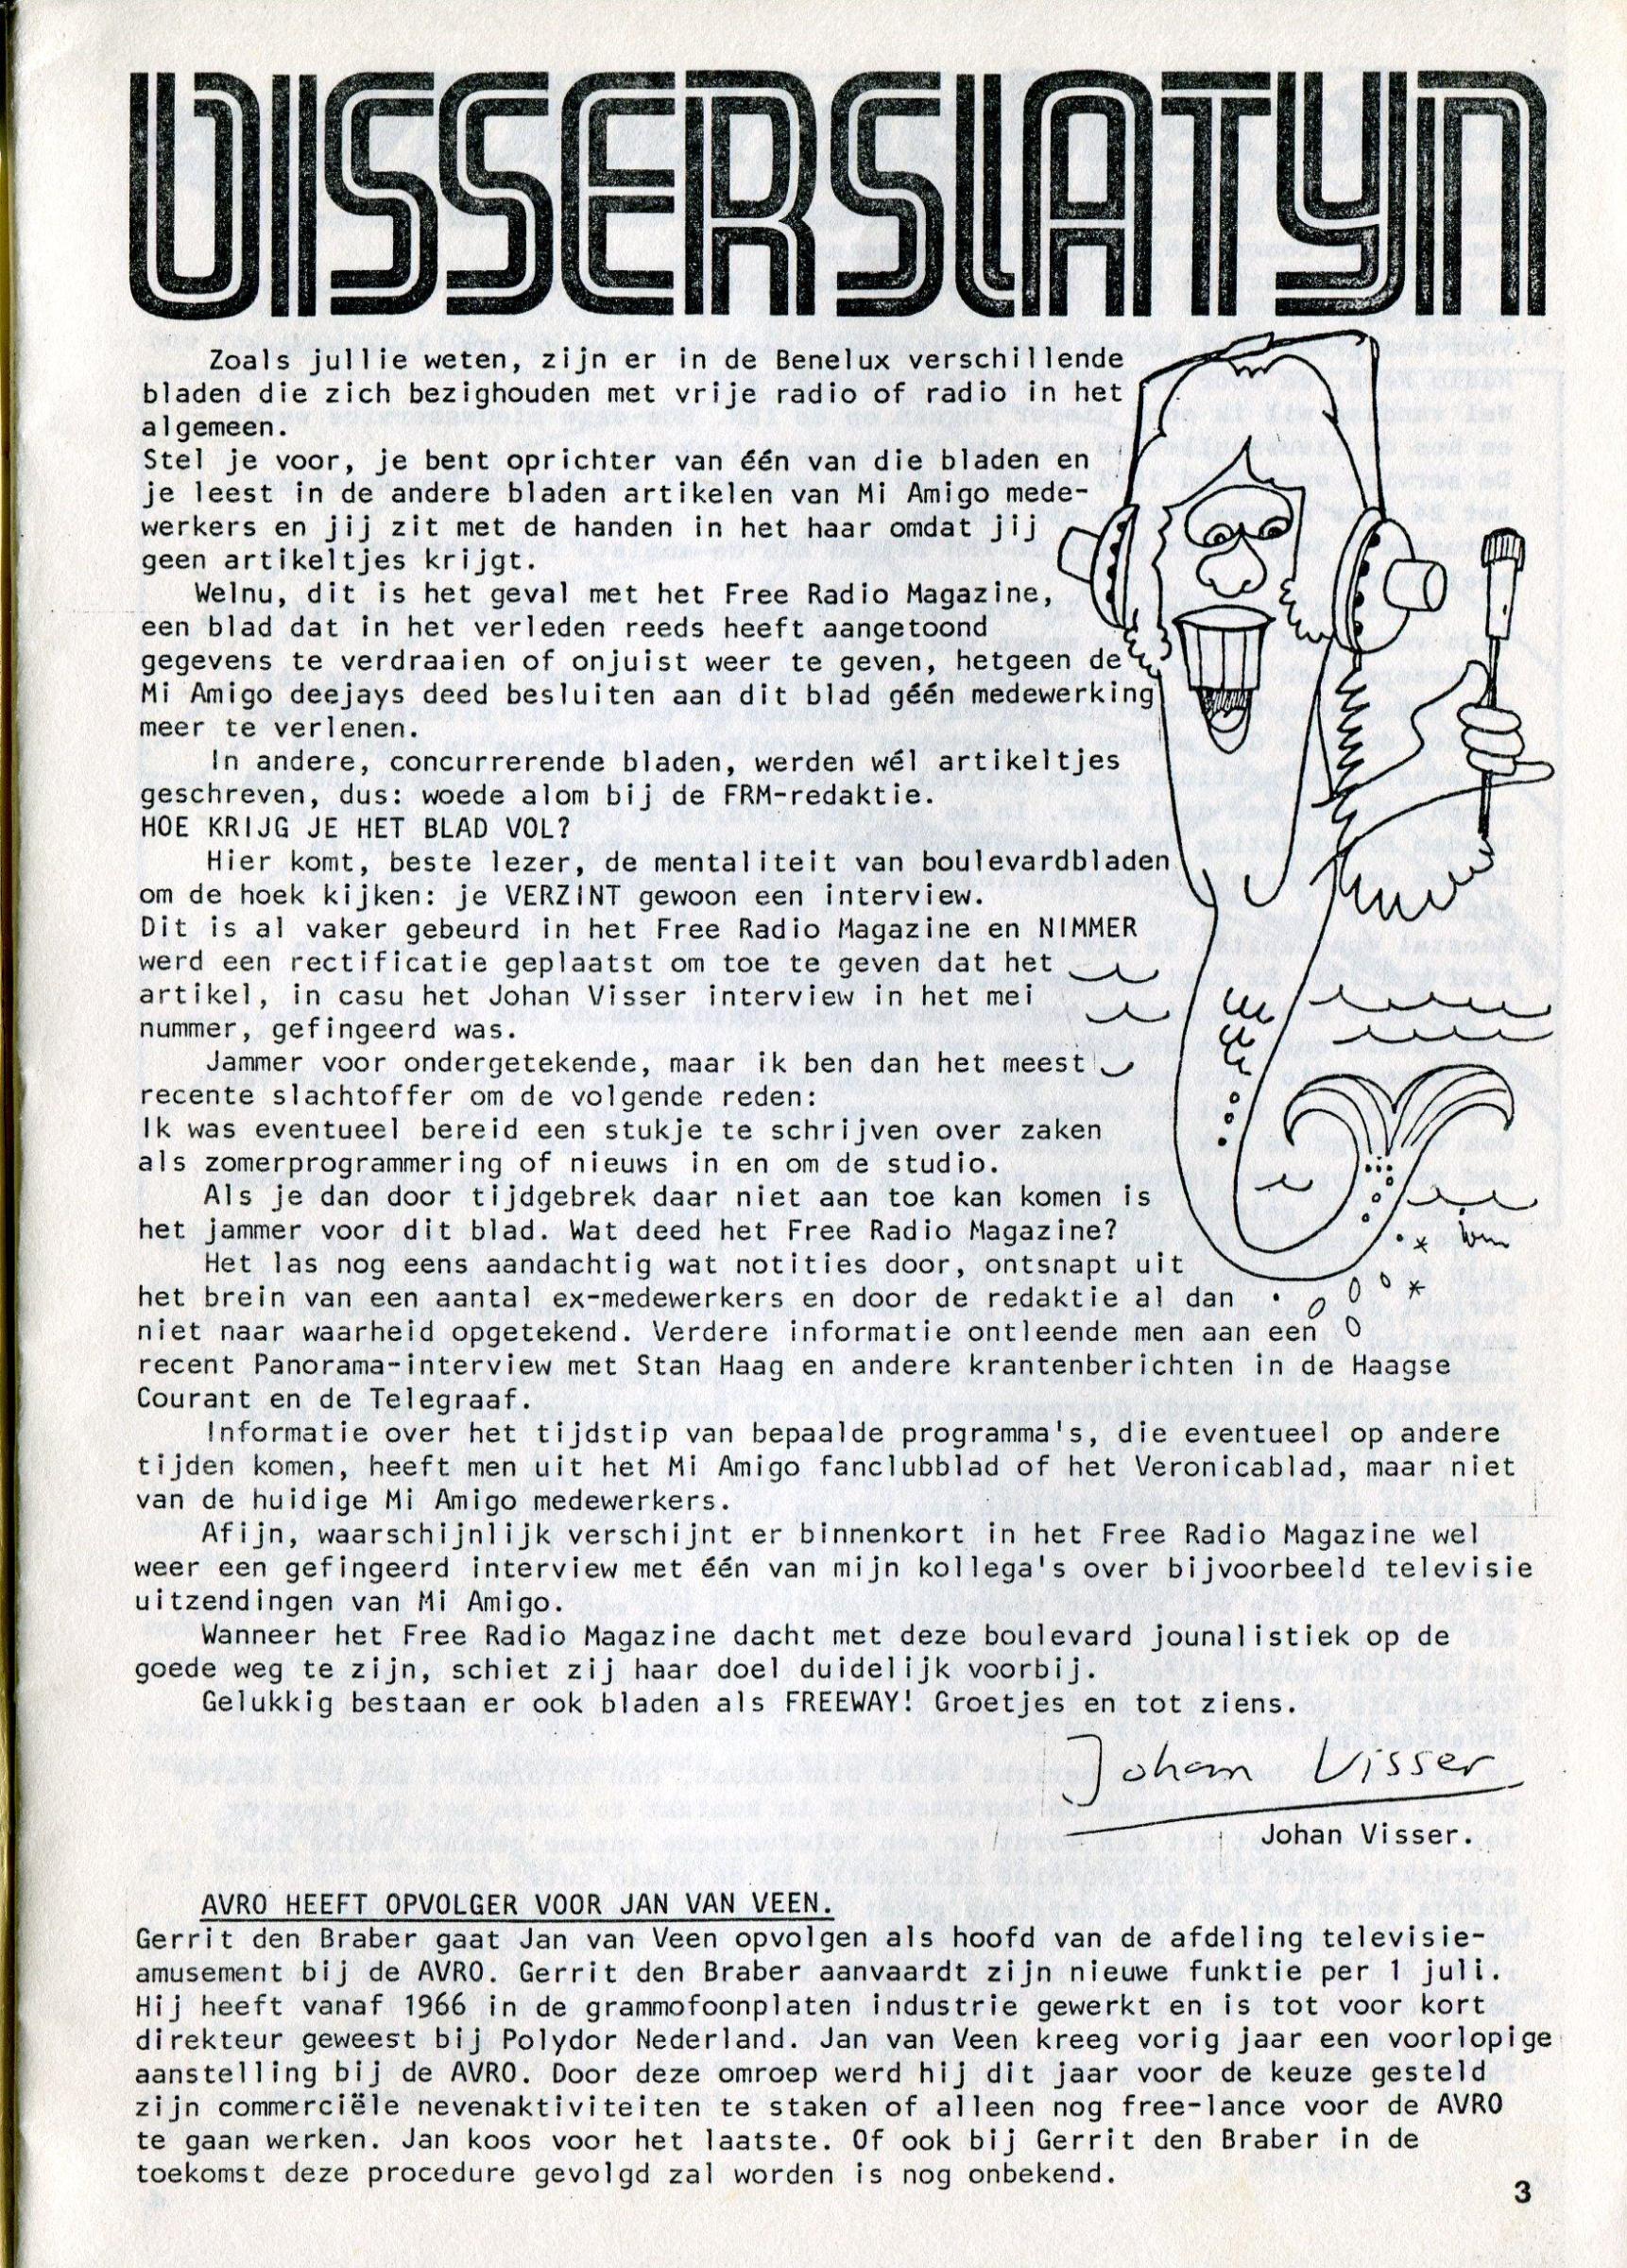 VISSERSLATYN
Zoals jullie weten, zijn er in de Benelux verschillende
bladen die zich bezighouden met vrije radio of radio in het
algemeen.
Stel je voor, je bent oprichter van één van die bladen en
je leest in de andere bladen artikelen van Mi Amigo mede-
werkers en jij zit met de handen in het haar omdat jij
geen artikeltjes krijgt.
Welnu, dit is het geval met het Free Radio Magazine,
een blad dat in het verleden reeds heeft aangetoond
gegevens te verdraaien of onjuist weer te geven, hetgeen de
Mi Amigo deejays deed besluiten aan dit blad géén medewerking
meer te verlenen.
In andere, concurrerende bladen, werden wél artikeltjes
geschreven, dus: woede alom bij de FRM-redaktie.
HOE KRIJG JE HET BLAD VOL?
Hier komt, beste lezer, de mentaliteit van boulevardbladen
om de hoek kijken: je VERZINT gewoon een interview.
Dit is al vaker gebeurd in het Free Radio Magazine en NIMMER
werd een rectificatie geplaatst om toe te geven dat het
artikel, in casu het Johan Visser interview in het mei
nummer, gefingeerd was.
Jammer voor ondergetekende, maar ik ben dan het meest
recente slachtoffer om de volgende reden:
Ik was eventueel bereid een stukje te schrijven over zaken
als zomerprogrammering of nieuws in en om de studio.
Als je dan door tijdgebrek daar niet aan toe kan komen is
het jammer voor dit blad. Wat deed het Free Radio Magazine?
Het las nog eens aandachtig wat notities door, ontsnapt uit
het brein van een aantal ex-medewerkers en door de redaktie al dan
niet naar waarheid opgetekend. Verdere informatie ontleende men aan een
recent Panorama-interview met Stan Haag en andere krantenberichten in de Haagse
Courant en de Telegraaf.
Informatie over het tijdstip van bepaalde programma's, die eventueel op andere
tijden komen, heeft men uit het Mi Amigo fanclubblad of het Veronicablad, maar niet
van de huidige Mi Amigo medewerkers.
Afijn, waarschijnlijk verschijnt er binnenkort in het Free Radio Magazine wel
weer een gefingeerd interview met één van mijn kollega's over bijvoorbeeld televisie
uitzendingen van Mi Amigo.
Wanneer het Free Radio Magazine dacht met deze boulevard jounalistiek op de
goede weg te zijn, schiet zij haar doel duidelijk voorbij.
Gelukkig bestaan er ook bladen als FREEWAY! Groetjes en tot ziens.
Johan Visser
Johan Visser.
AVRO HEEFT OPVOLGER VOOR JAN VAN VEEN.
Gerrit den Braber gaat Jan van Veen opvolgen als hoofd van de afdeling televisie-
amusement bij de AVRO. Gerrit den Braber aanvaardt zijn nieuwe funktie per 1 juli.
Hij heeft vanaf 1966 in de grammofoonplaten industrie gewerkt en is tot voor kort
direkteur geweest bij Polydor Nederland. Jan van Veen kreeg vorig jaar een voorlopige
aanstelling bij de AVRO. Door deze omroep werd hij dit jaar voor de keuze gesteld
zijn commerciële nevenaktiviteiten te staken of alleen nog free-lance voor de AVRO
te gaan werken. Jan koos voor het laatste. Of ook bij Gerrit den Braber in de
toekomst deze procedure gevolgd zal worden is nog onbekend.
3